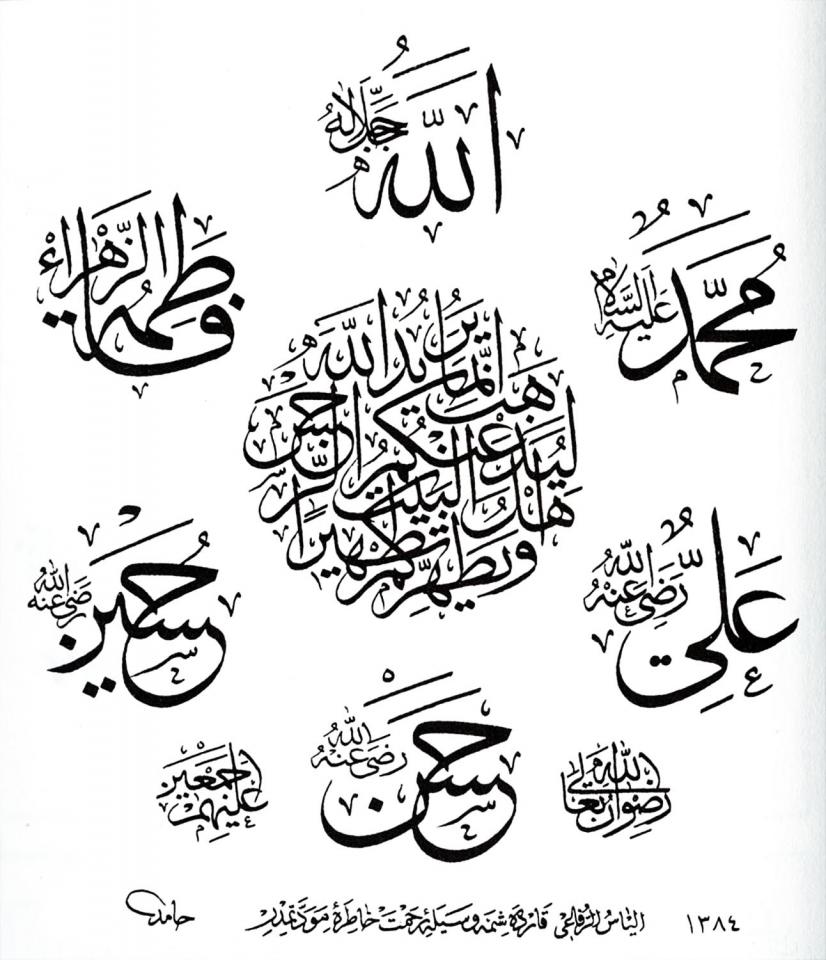 الله جل جلاله
محمد عليه السلام
فاطمة الزهراء
إنما يريد الله
ليذهب عنكم الرجس
أهل البيت
ويطهركم تطهيرا
علي رضي الله عنه
حسين رضي الله عنه
حسن رضي الله عنه
رضوان الله تعالى
عليهم أجمعين
١٣٨٤ قارده شمه وسيلۀ رحمت خاطرۀ مودتمدر
حامد